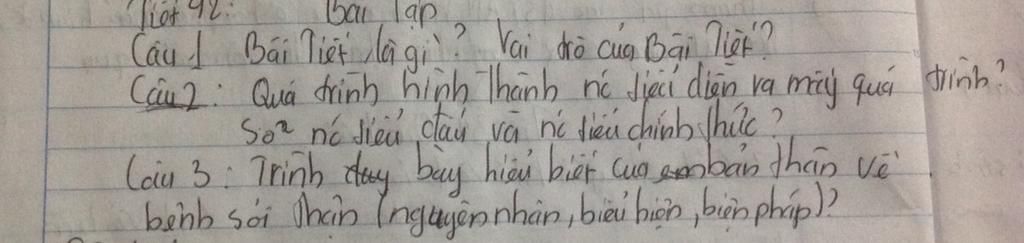 Tiết 42: Bài tập
Câu 1 Bài Tiết là gì? Vai trò của Bài Tiết?
Câu 2: Quá trình hình thành nc tiểu diễn ra mấy quá trình?
So² nc tiểu đầu và nc tiểu chính thức?
Câu 3: Trình bày hiểu biết của bản thân về
bệnh sỏi thận (nguyên nhân, biểu hiện, biện pháp)?